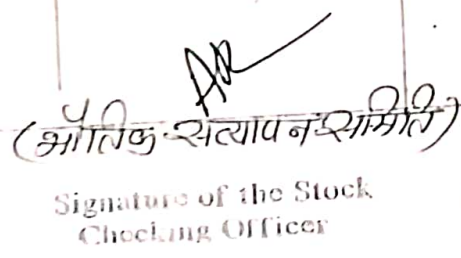 (भौतिक सत्यापन समिति)
Signature of the Stock
Checking Officer